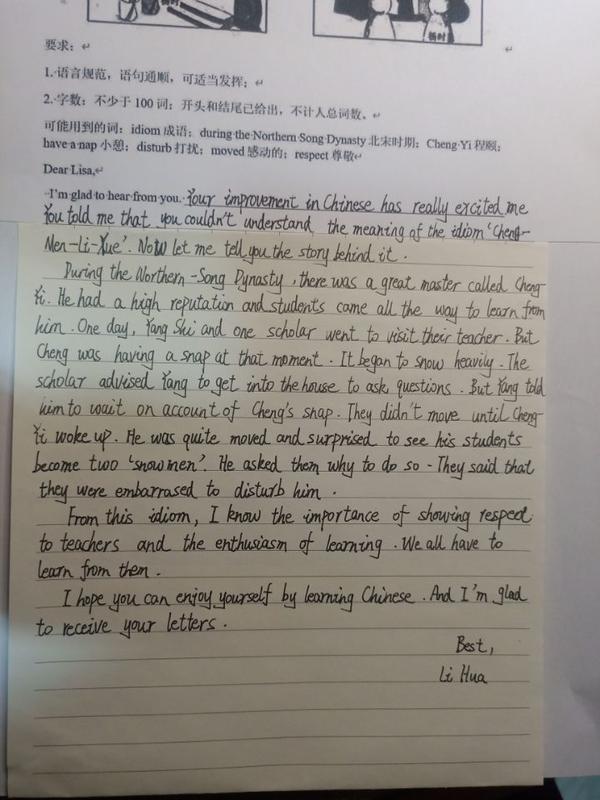 杨时
杨时
要求：
1.语言规范，语句通顺，可适当发挥；
2.字数：不少于100词；开头和结尾已给出，不计人总词数。
可能用到的词：idiom 成语；during the Northern Song Dynasty 北宋时期；Cheng Yi 程颐；
have a nap 小憩；disturb 打扰；moved 感动的；respect 尊敬
Dear Lisa,
I'm glad to hear from you. Your improvement in Chinese has really excited me
You told me that you couldn't understand the meaning of the idiom 'Cheng-
Men-Li-Xue'. Now let me tell you the story behind it.
During the Northern-Song Dynasty, there was a great master called Cheng
Yi. He had a high reputation and students came all the way to learn from
him. One day, Yang Shi and one scholar went to visit their teacher. But
Cheng was having a snap at that moment. It began to snow heavily. The
scholar advised Yang to get into the house to ask questions. But Yang told
him to wait on account of Cheng's snap. They didn't move until Cheng-
Yi woke up. He was quite moved and surprised to see his students
become two 'snowmen'. He asked them why to do so - They said that
they were embarrased to disturb him.
From this idiom, I know the importance of showing respect
to teachers and the enthusiasm of learning. We all have to
learn from them.
I hope you can enjoy yourself by learning Chinese. And I'm glad
to receive your letters.
Best,
Li Hua